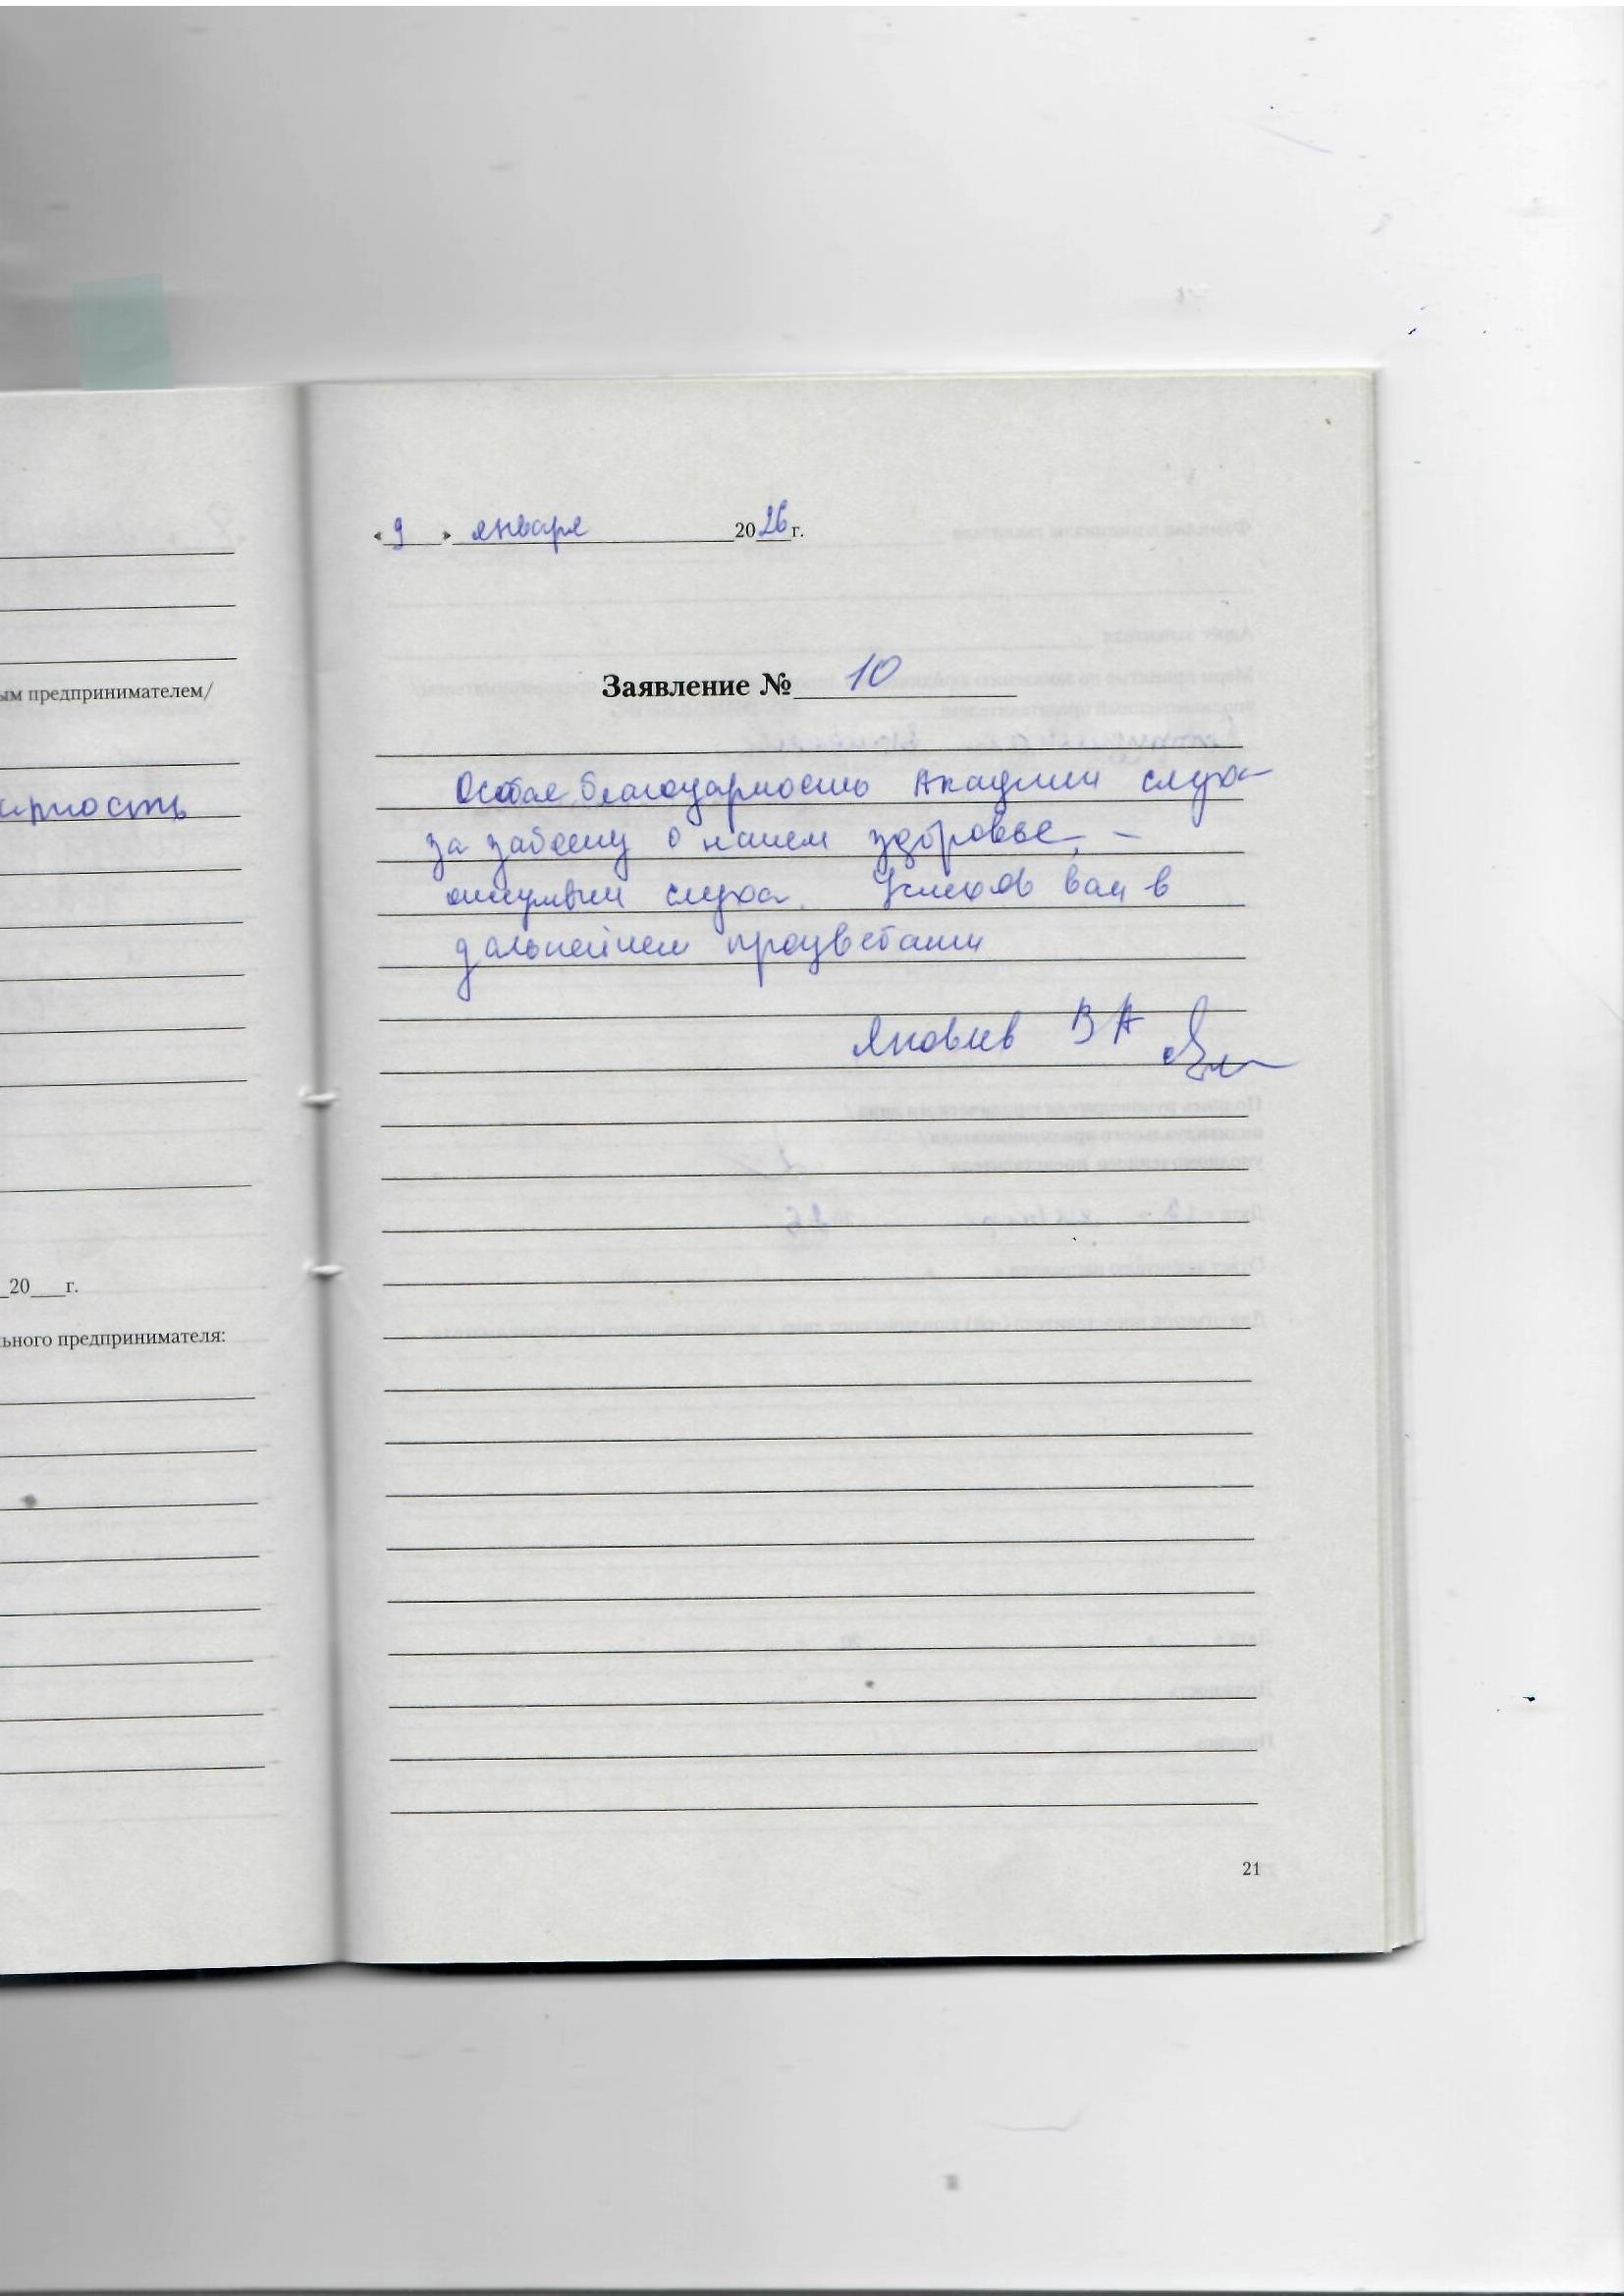 ым предпринимателем/
рность
20___г.
ьного предпринимателя:
« 9 » января 2026 г.
Заявление № 10
Особая благодарность Академии слуха
за заботу о нашем здоровье, –
слуха. Успехов вам в
дальнейшем процветании
Яковлев В А
21